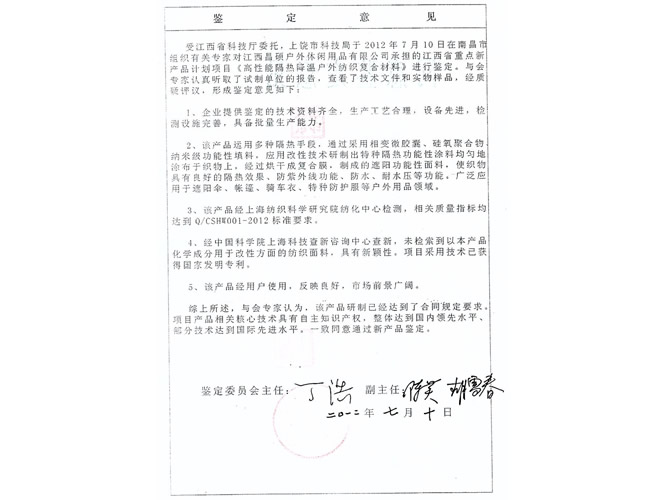 鉴 定 意 见
受江西省科技厅委托，上饶市科技局于 2012 年 7 月 10 日在南昌市
组织有关专家对江西昌硕户外休闲用品有限公司承担的江西省重点新
产品计划项目《高性能隔热降温户外纺织复合材料》进行鉴定。与会
专家认真听取了试制单位的报告，查看了技术文件和实物样品，经质
疑评议，形成鉴定意见如下：
1、企业提供鉴定的技术资料齐全，生产工艺合理，设备先进，检
测设施完善，具备批量生产能力。
2、该产品运用多种隔热手段，通过采用相变微胶囊、硅氧聚合物
纳米级功能性填料，应用改性技术研制出特种隔热功能性涂料均匀地
涂布于织物上，经过烘干成复合膜，制成的遮阳功能性面料，使织物
具有良好的隔热效果、防紫外线功能、防水、耐水压等功能。广泛应
用于遮阳伞、帐篷、骑车衣、特种防护服等户外用品领域。
3、该产品经上海纺织科学研究院纺化中心检测，相关质量指标均
达到 Q/CSHW001-2012 标准要求。
4、经中国科学院上海科技查新咨询中心查新，未检索到以本产品
化学成分用于改性方面的纺织面料，具有新颖性。项目采用技术已获
得国家发明专利。
5、该产品经用户使用，反映良好，市场前景广阔。
综上所述，与会专家认为，该产品研制已经达到了合同规定要求。
项目产品相关核心技术具有自主知识产权，整体达到国内领先水平、
部分技术达到国际先进水平。一致同意通过新产品鉴定。
鉴定委员会主任：丁浩 副主任：
二〇一二年 七 月 十 日